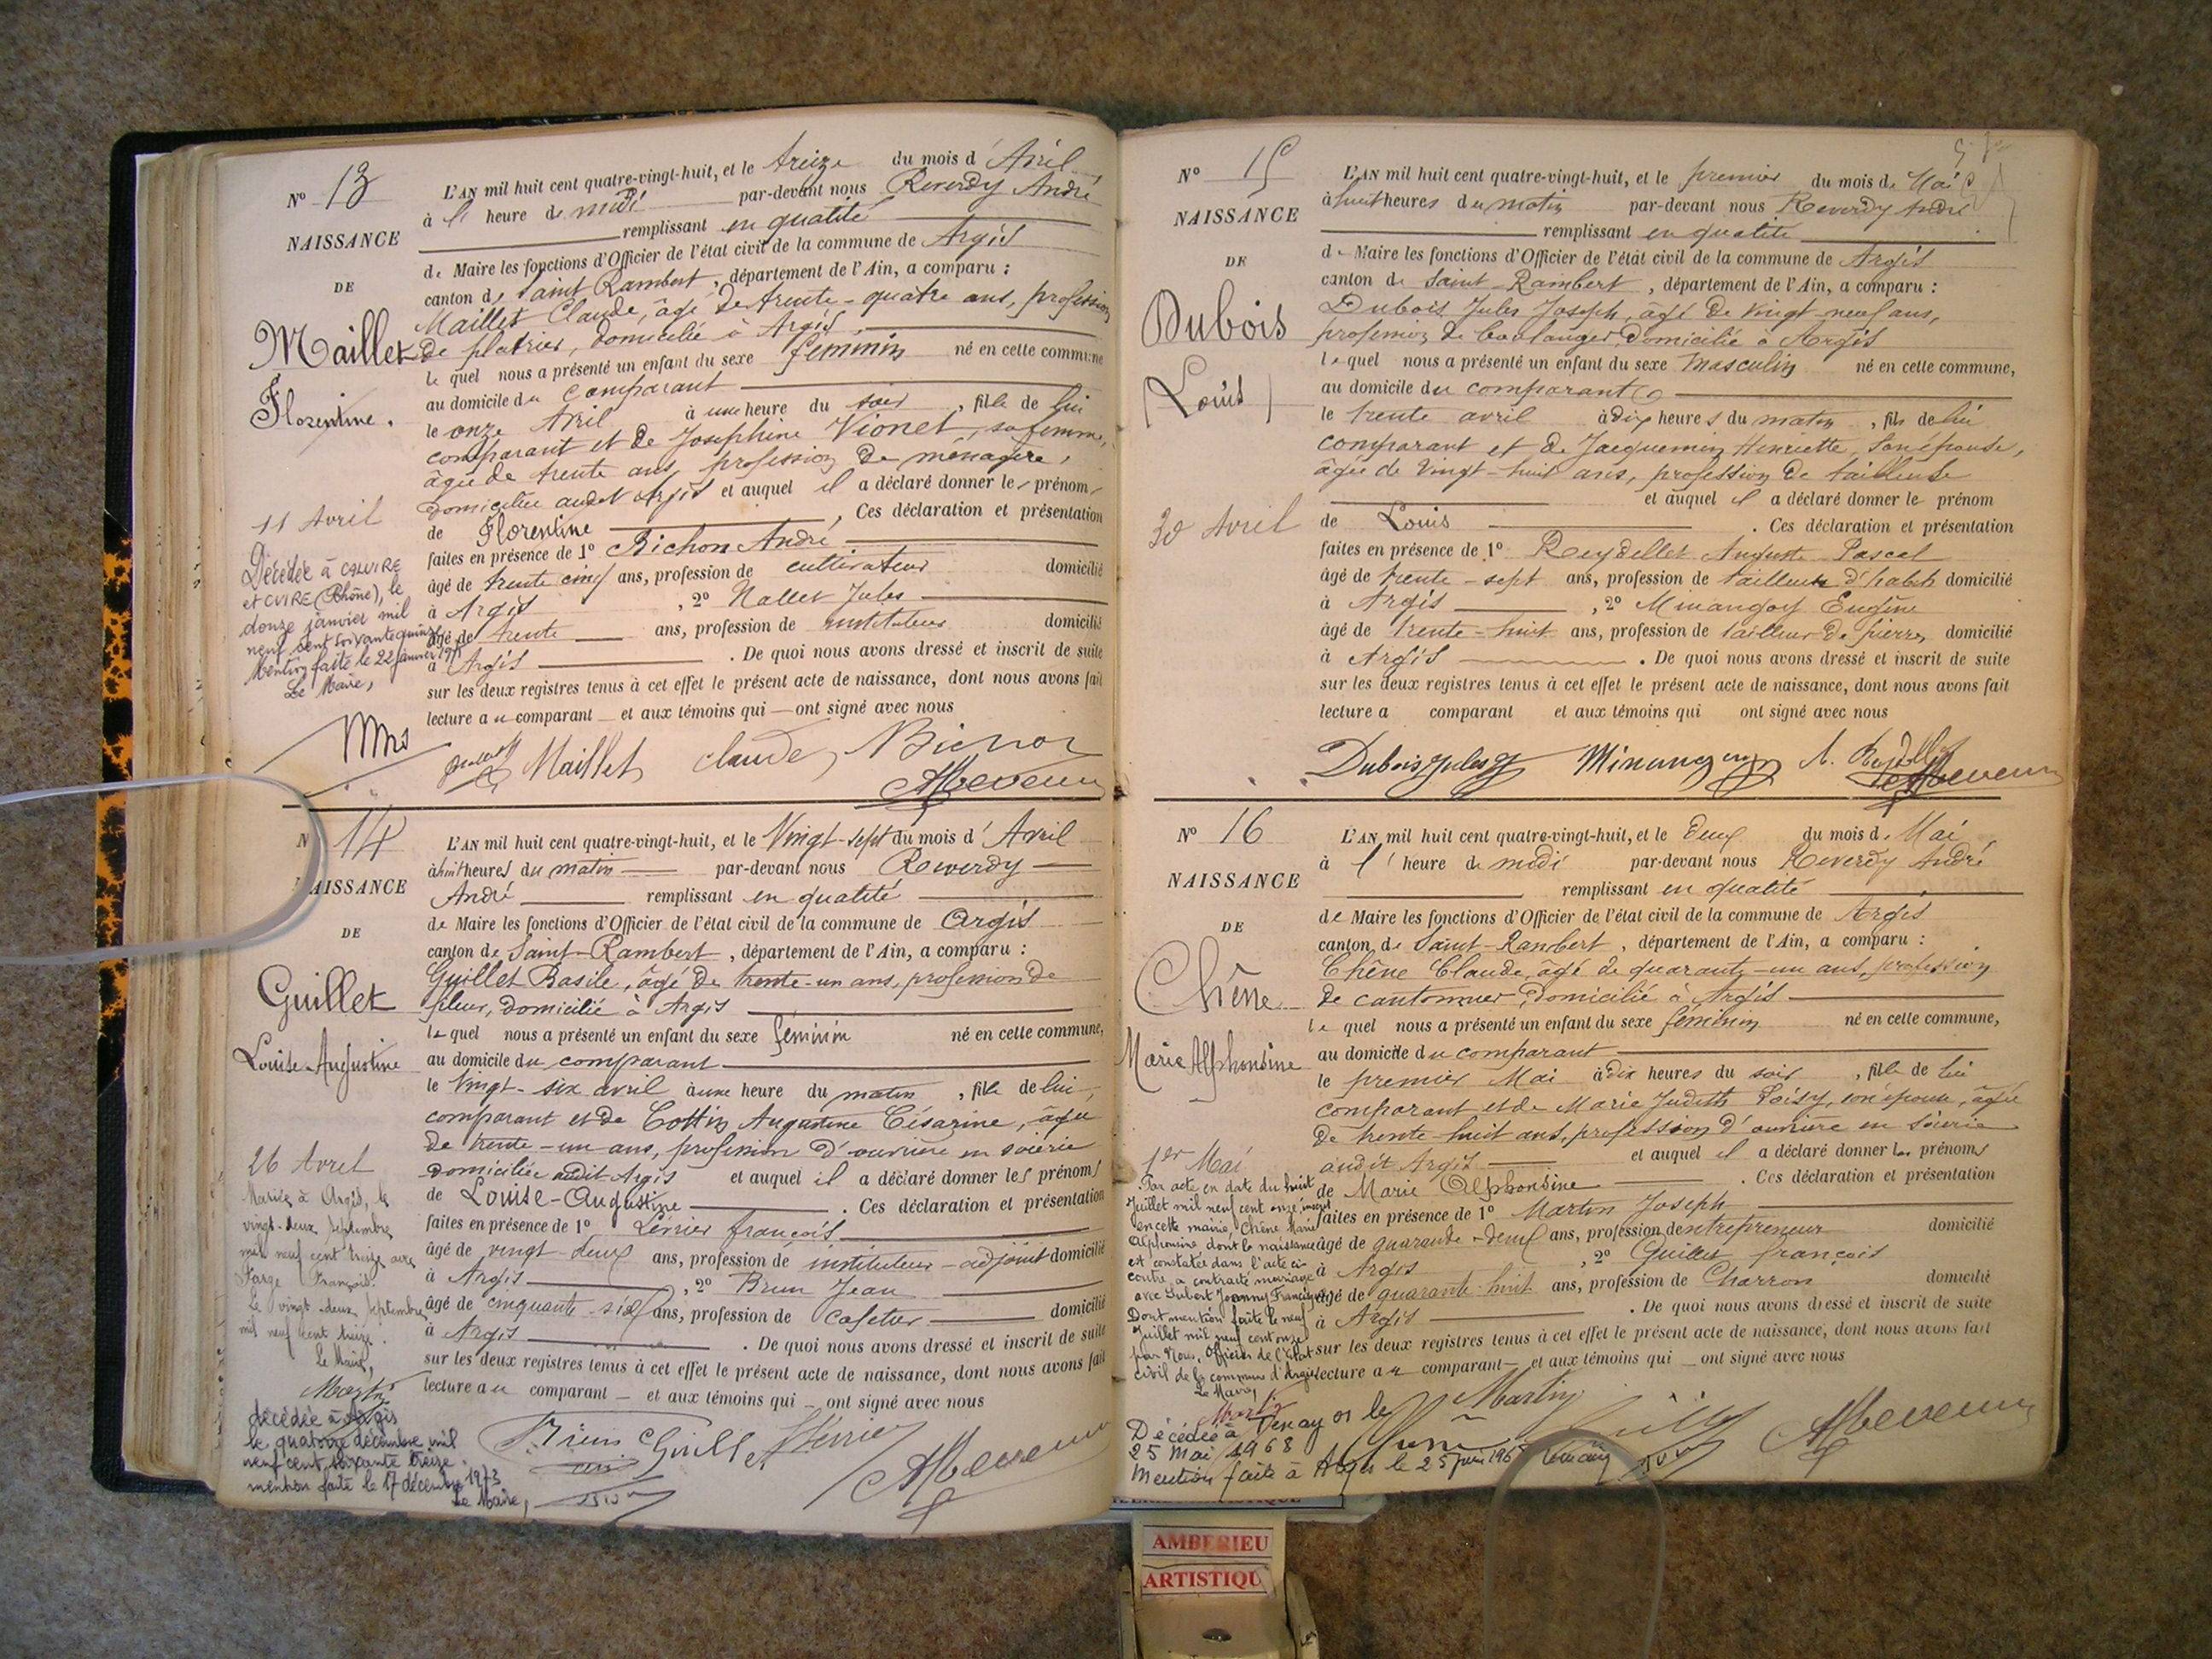 N° 13
NAISSANCE
DE
Maillet
Florentine.
11 Avril
Décédée à CALUIRE
et CUIRE (Rhône), le
douze janvier mil
neuf cent soixante quinze
Mention faite le 22 janvier 1975
Le Maire,
L'AN mil huit cent quatre-vingt-huit, et le treize du mois d'Avril
à l'heure de midi par-devant nous Reverdy André
remplissant en qualité
de Maire les fonctions d'Officier de l'état civil de la commune de Argis
canton de Saint Rambert, département de l'Ain, a comparu :
Maillet Claude, âgé de trente-quatre ans, profession
de platrier, domicilié à Argis
lequel nous a présenté un enfant du sexe féminin né en cette commune
au domicile du comparant
le onze Avril à une heure du soir, fille de lui
comparant et de Josephine Vionet, sa femme,
âgée de trente ans, profession de ménagère,
domiciliée audit Argis et auquel il a déclaré donner le prénom
de Florentine. Ces déclaration et présentation
faites en présence de 1° Bichon André
âgé de trente cinq ans, profession de cultivateur domicilié
à Argis, 2° Nallet Jules
âgé de trente ans, profession de instituteur domicilié
à Argis. De quoi nous avons dressé et inscrit de suite
sur les deux registres tenus à cet effet le présent acte de naissance, dont nous avons fait
lecture au comparant et aux témoins qui ont signé avec nous
Maillet Claude Bichon
N° 14
NAISSANCE
DE
Guillet
Louise-Augustine
26 Avril
Mariée à Argis, le
vingt-deux septembre
mil neuf cent treize avec
Farge François.
Le vingt-deux septembre
mil neuf cent treize.
Le Maire,
Martin
décédée à Argis
le quatorze décembre mil
neuf cent soixante treize.
mention faite le 17 décembre 1973
Le Maire,
L'AN mil huit cent quatre-vingt-huit, et le Vingt-sept du mois d'Avril
à huit heures du matin par-devant nous Reverdy
André remplissant en qualité
de Maire les fonctions d'Officier de l'état civil de la commune de Argis
canton de Saint-Rambert, département de l'Ain, a comparu :
Guillet Basile, âgé de trente-un ans, profession de
fileur, domicilié à Argis
lequel nous a présenté un enfant du sexe féminin né en cette commune,
au domicile du comparant
le Vingt-six avril à une heure du matin, fille de lui,
comparant et de Cottin Augustine Césarine, âgée
de trente-un ans, profession d'ouvrière en soierie
domiciliée audit Argis et auquel il a déclaré donner les prénoms
de Louise-Augustine. Ces déclaration et présentation
faites en présence de 1° François
âgé de vingt deux ans, profession de instituteur-adjoint domicilié
à Argis, 2° Brun Jean
âgé de cinquante-six ans, profession de cafetier domicilié
à Argis. De quoi nous avons dressé et inscrit de suite
sur les deux registres tenus à cet effet le présent acte de naissance, dont nous avons fait
lecture au comparant et aux témoins qui ont signé avec nous
Brun Guillet
N° 15
NAISSANCE
DE
Dubois
Louis
30 Avril
L'AN mil huit cent quatre-vingt-huit, et le premier du mois de Mai
à huit heures du matin par-devant nous Reverdy André
remplissant en qualité
de Maire les fonctions d'Officier de l'état civil de la commune de Argis
canton de Saint-Rambert, département de l'Ain, a comparu :
Dubois Jules Joseph, âgé de Vingt-neuf ans,
profession de boulanger, domicilié à Argis
lequel nous a présenté un enfant du sexe masculin né en cette commune,
au domicile du comparant
le trente avril à dix heures du matin, fils de lui
comparant et de Jacquemin Henriette, son épouse,
âgée de Vingt-huit ans, profession de tailleuse
et auquel il a déclaré donner le prénom
de Louis. Ces déclaration et présentation
faites en présence de 1° Reydellet Auguste Pascal
âgé de trente-sept ans, profession de tailleur d'habits domicilié
à Argis, 2° Minangoy Eugène
âgé de trente-huit ans, profession de tailleur de pierres domicilié
à Argis. De quoi nous avons dressé et inscrit de suite
sur les deux registres tenus à cet effet le présent acte de naissance, dont nous avons fait
lecture a comparant et aux témoins qui ont signé avec nous
Dubois Jules Minangoy A. Reydellet
N° 16
NAISSANCE
DE
Chêne
Marie Alphonsine
1er Mai
Par acte en date du huit
Juillet mil neuf cent onze inscrit
en cette mairie, Chêne Marie
Alphonsine dont la naissance
est constatée dans l'acte ci-
contre a contracté mariage
avec Gubert Joanny François
Dont mention faite le neuf
Juillet mil neuf cent onze
par Nous, Officier de l'Etat
civil de la commune d'Argis
Le Maire,
Martin
Décédée à Tenay 01 le
25 Mai 1968
Mention faite à Argis le 25 juin 1968
L'AN mil huit cent quatre-vingt-huit, et le deux du mois de Mai
à l'heure de midi par-devant nous Reverdy André
remplissant en qualité
de Maire les fonctions d'Officier de l'état civil de la commune de Argis
canton de Saint-Rambert, département de l'Ain, a comparu :
Chêne Claude, âgé de quarante-un ans, profession
de cantonnier, domicilié à Argis
lequel nous a présenté un enfant du sexe féminin né en cette commune,
au domicile du comparant
le premier Mai à dix heures du soir, fille de lui
comparant et de Marie Judith Loisy, son épouse, âgée
de trente-huit ans, profession d'ouvrière en soierie
audit Argis et auquel il a déclaré donner les prénoms
de Marie Alphonsine. Ces déclaration et présentation
faites en présence de 1° Martin Joseph
âgé de quarante-deux ans, profession d'entrepreneur domicilié
à Argis, 2° Guillet François
âgé de quarante-huit ans, profession de Charron domicilié
à Argis. De quoi nous avons dressé et inscrit de suite
sur les deux registres tenus à cet effet le présent acte de naissance, dont nous avons fait
lecture au comparant et aux témoins qui ont signé avec nous
Martin
AMBERIEU
ARTISTIQU